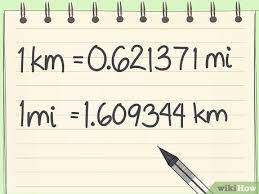 1km = 0.621371 mi
1mi = 1.609344 km
wikiHow